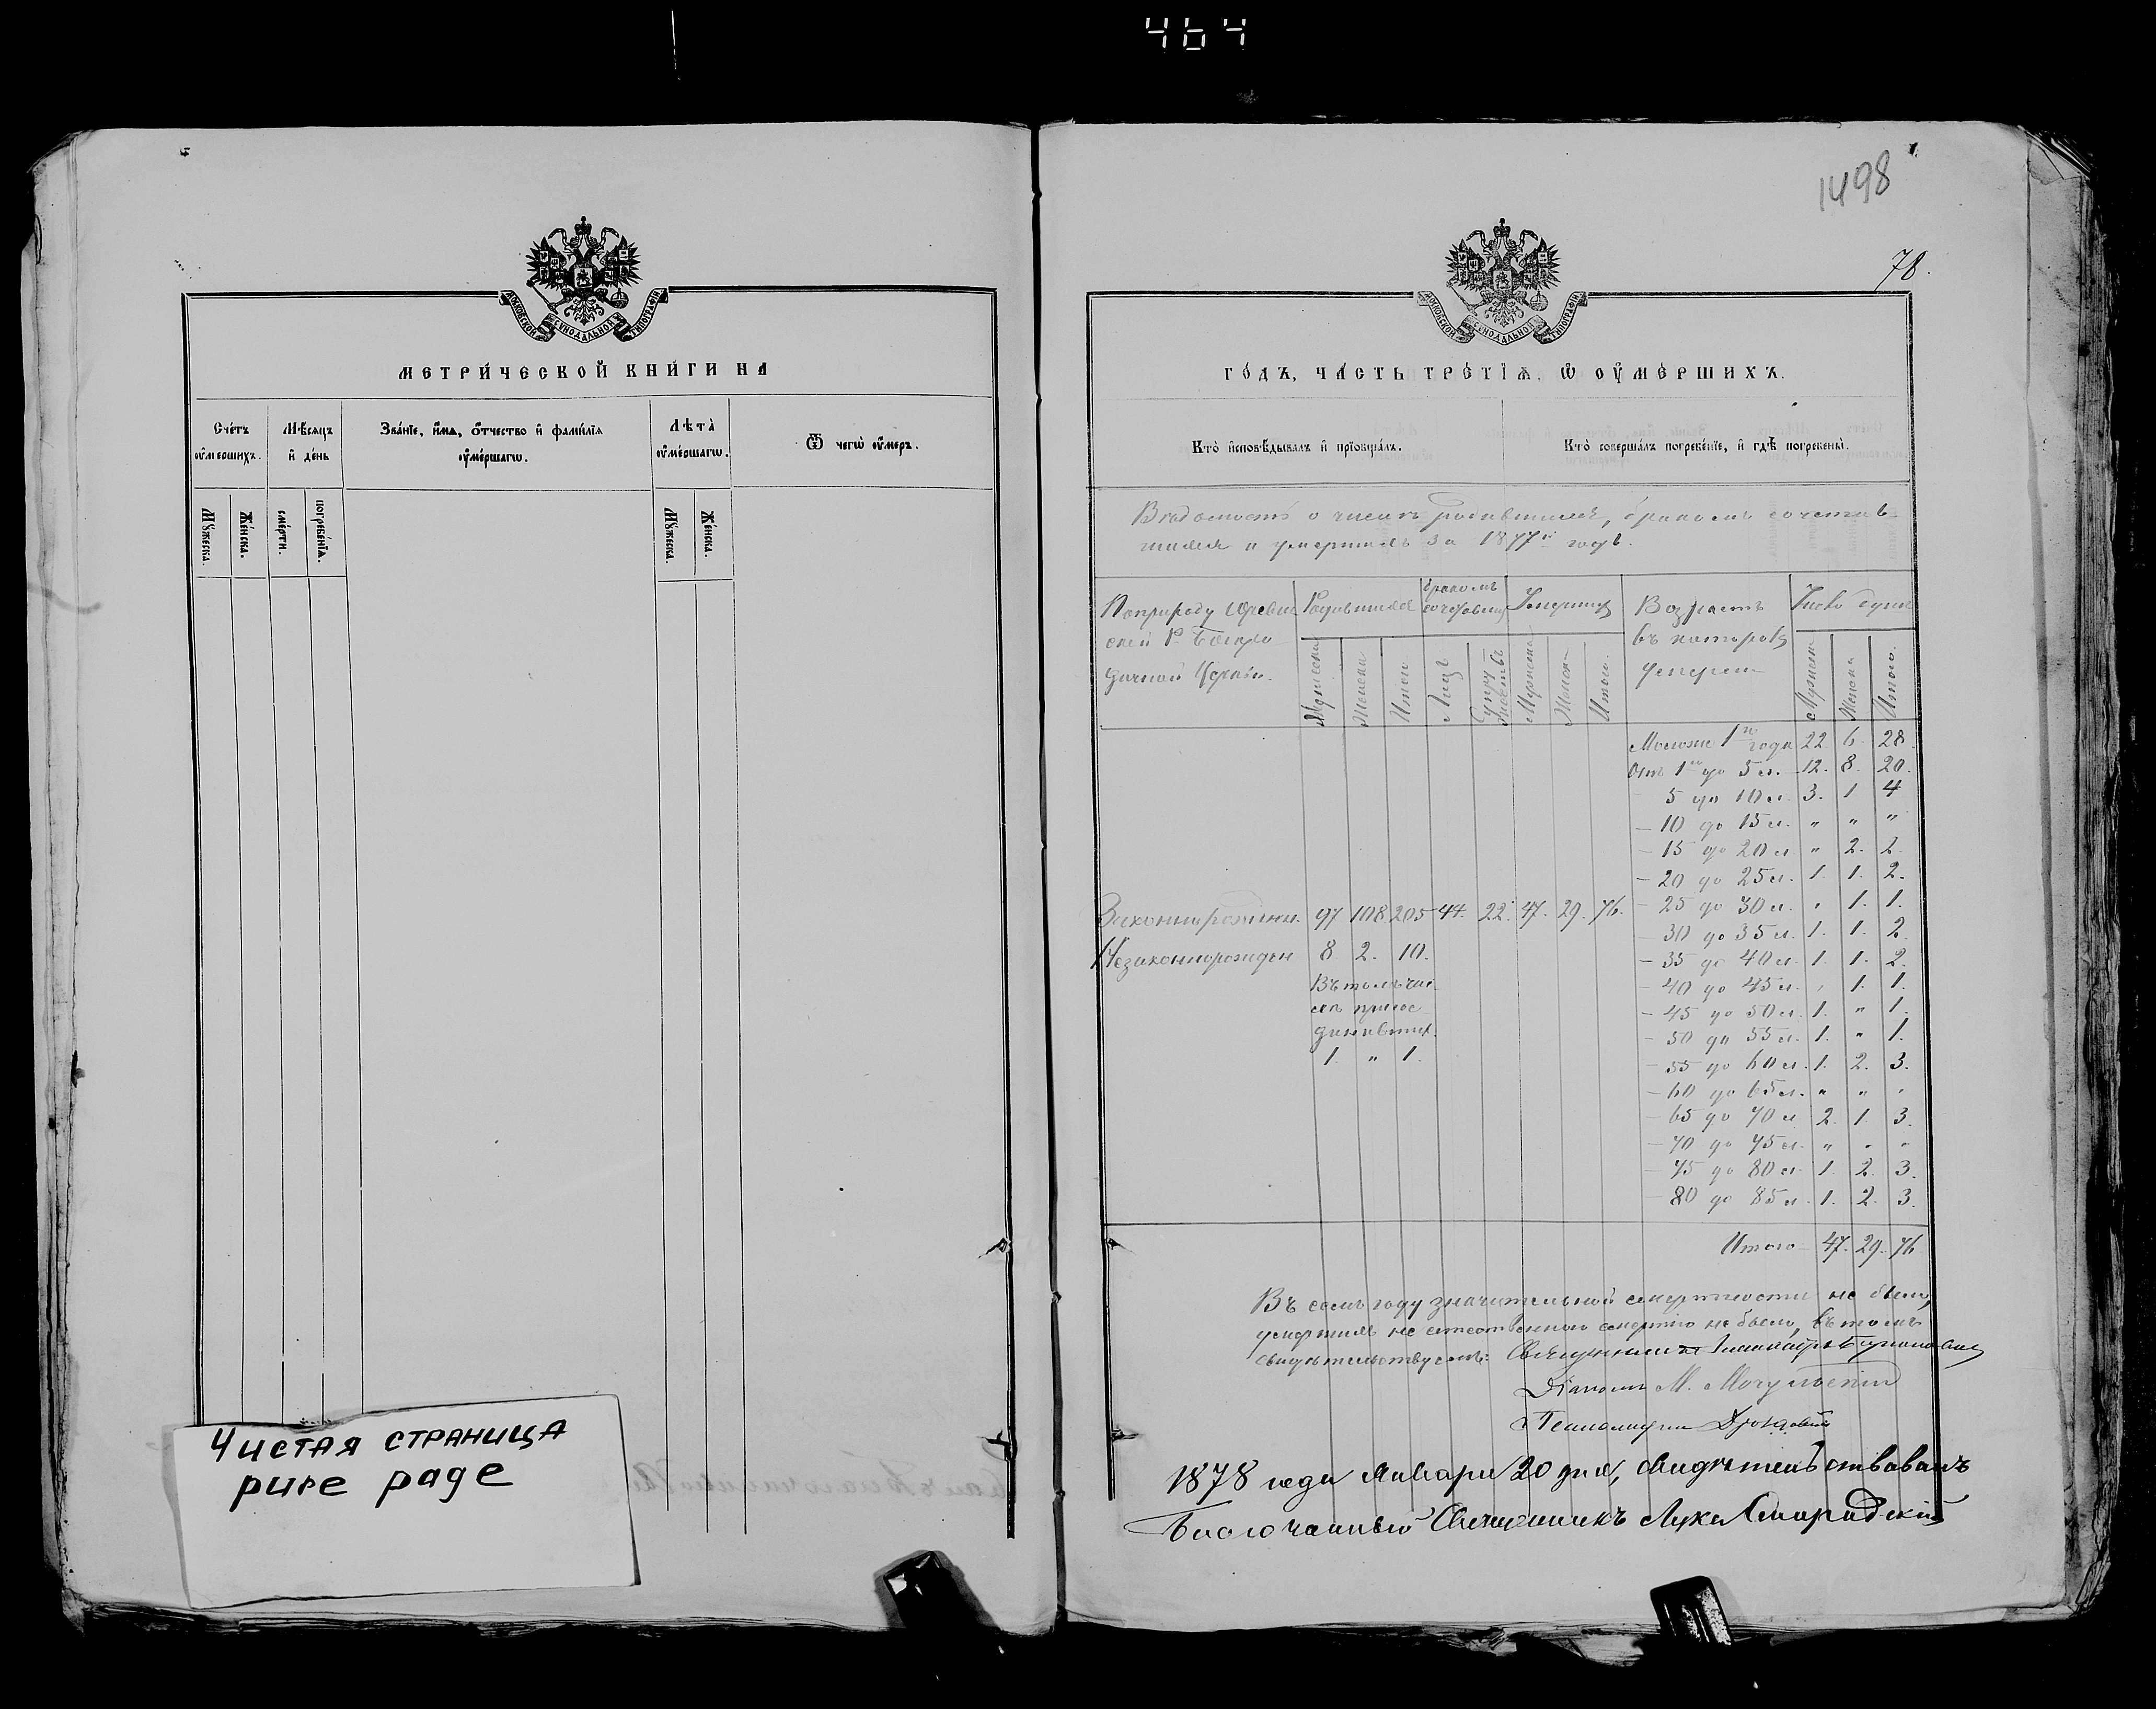 464
1498
78.
МОСКОВСКОЙ СѴНОДАЛЬНОЙ ТИПОГРАФІИ
МЕТРИ́ЧЕСКОЙ КНИ́ГИ НА
Сче́тъ оу҆ме́ршихъ.
Мѣ́сяцъ и҆ де́нь
Зва́нїе, и҆́мѧ, ѻ҆́тчество и҆ фами́лїѧ оу҆ме́ршагѡ.
Лѣ́та оу҆ме́ршагѡ.
Ѿ чегѡ̀ оу҆́меръ.
Мꙋ́жеска.
Же́нска.
сме́рти.
погребе́нїѧ.
Мꙋ́жеска.
Же́нска.
Чистая страница
pure page
МОСКОВСКОЙ СѴНОДАЛЬНОЙ ТИПОГРАФІИ
ГО́ДЪ, ЧА́СТЬ ТРЕ́ТЇѦ, Ѡ҆ ОУ҆МЕ́РШИХЪ.
Кто̀ и҆сповѣ́дывалъ и҆ прїобща́лъ.
Кто̀ соверша́лъ погребе́нїе, и҆ гдѣ̀ погребены̀.
Вѣдомость о числѣ родившихся, бракомъ сочетав
шихся и умершихъ за 1877й годъ.
Родившихся
бракомъ
Умершихъ
Возрастъ
въ которомъ
умерли
Число душъ
Мужеска
Женска
Итого
Лицъ
Мужеска
Женска
Итого.
Мужеска
Женска
Итого.
Моложе 1го года 22. 6. 28.
Отъ 1го до 5 л. 12. 8. 20.
5 до 10 л. 3. 1 4
— 10 до 15 л. „ „ „
— 15 до 20 л. „ 2. 2.
— 20 до 25 л. 1. 1. 2.
Законнорожден. 97 108 205 44. 22. 47. 29. 76.
— 25 до 30 л. „ 1. 1.
— 30 до 35 л. 1. 1. 2.
Незаконнорожден 8 2. 10.
— 35 до 40 л. 1. 1. 2.
Въ томъ чис
— 40 до 45 л. „ 1. 1.
лѣ присое
— 45 до 50 л. 1. „ 1.
динившихся
— 50 до 55 л. 1. „ 1.
1. „ 1.
— 55 до 60 л. 1. 2. 3.
— 60 до 65 л. „ „ „
— 65 до 70 л. 2. 1. 3.
— 70 до 75 л. „ „ „
— 75 до 80 л. 1. 2. 3.
— 80 до 85 л. 1. 2. 3.
Итого — 47. 29. 76
Въ семъ году значительной смертности не было,
умершихъ не естественною смертію не было, въ томъ
свидѣтельствуемъ: Священникъ
Діаконъ М.
Псаломщикъ
1878 года Января 20 дня, свидѣтельствовалъ
Благочинный Священникъ Лука